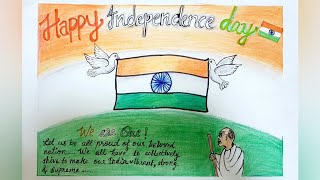 Happy Independence day
We are One!
Let us be all proud of our beloved
nation.... We all have to collectively
strive to make our India vibrant, strong
& supreme....